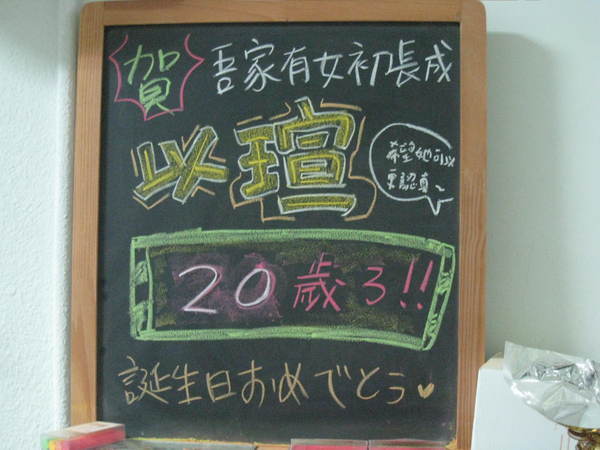 賀 吾家有女初長成
以瑄
希望她可以
更認真~
20歲ろ!!
誕生日おめでとう♥